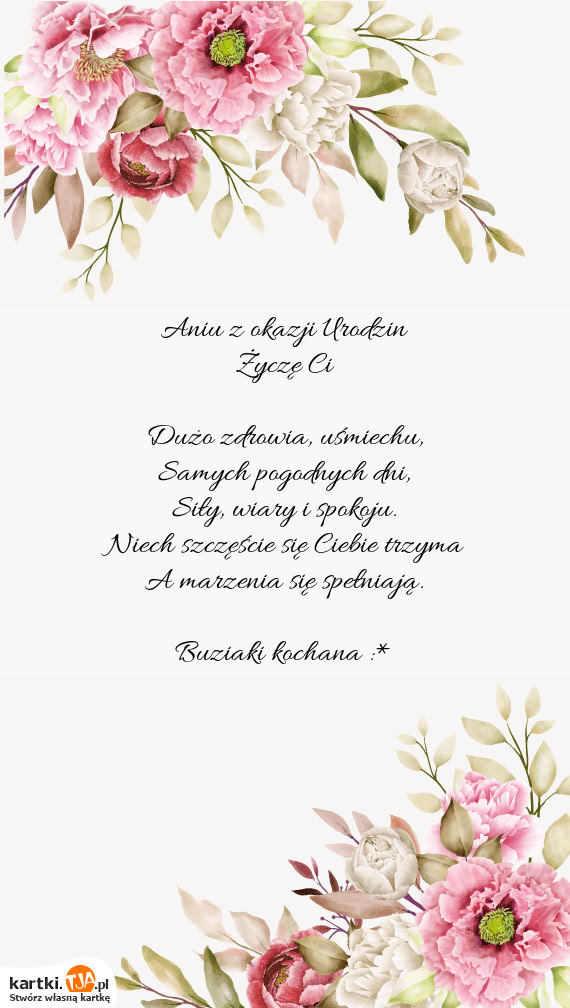 Aniu z okazji Urodzin
Życzę Ci
Dużo zdrowia, uśmiechu,
Samych pogodnych dni,
Siły, wiary i spokoju.
Niech szczęście się Ciebie trzyma
A marzenia się spełniają.
Buziaki kochana :*
kartki.TJA.pl
Stwórz własną kartkę